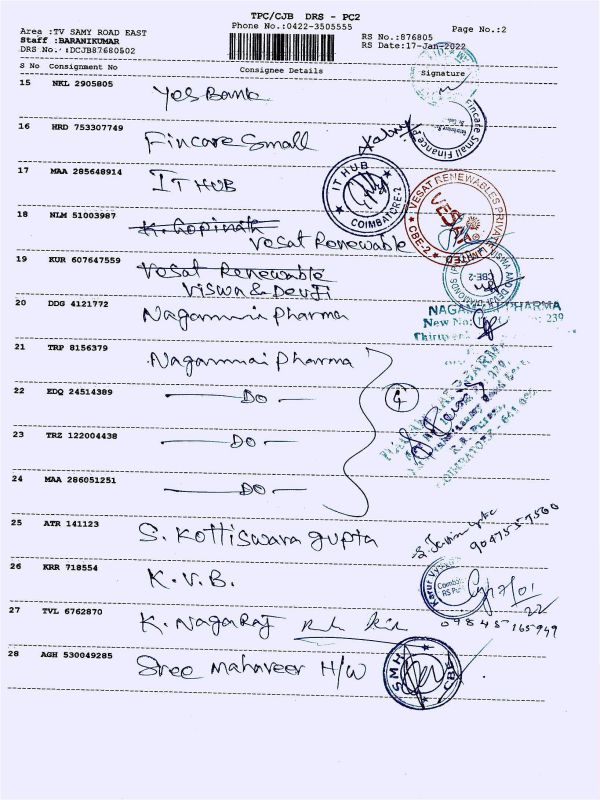 TPC/CJB DRS - PC2
Phone No.:0422-3505555
Page No.:2
Area :TV SAMY ROAD EAST
Staff :BARANIKUMAR
DRS No.:DCJB87680502
RS No.:876805
RS Date:17-Jan-2022
S No Consignment No Consignee Details Signature
15 NKL 2905805 Yes Bank
16 HRD 753307749 Fincare Small
Fincare Small Finance
17 MAA 285648914 IT HUB
IT HUB COIMBATORE-2
18 NLM 51003987 K. Gopinath
Vesat Renewable
VESAT RENEWABLES PRIVATE LIMITED CBE-2
VESAT
19 KUR 607647559 Vesat Renewable
Viswa & Devji
VISWA AND DEVJI DIAMONDS
CBE-2
20 DDG 4121772 Nagammai Pharma
NAGAMMAI PHARMA
New No: 239
21 TRP 8156379 Nagammai Pharma
22 EDQ 24514389 — DO —
23 TRZ 122004438 — DO —
24 MAA 286051251 — DO —
4
COIMBATORE
25 ATR 141123 S. Kottiswara gupta
9047557560
26 KRR 718554 K.V.B.
Karur Vysya
27 TVL 6762870 K. Nagaraj
09845165949
28 AGH 530049285 Sree Mahaveer H/W
SMH CBE